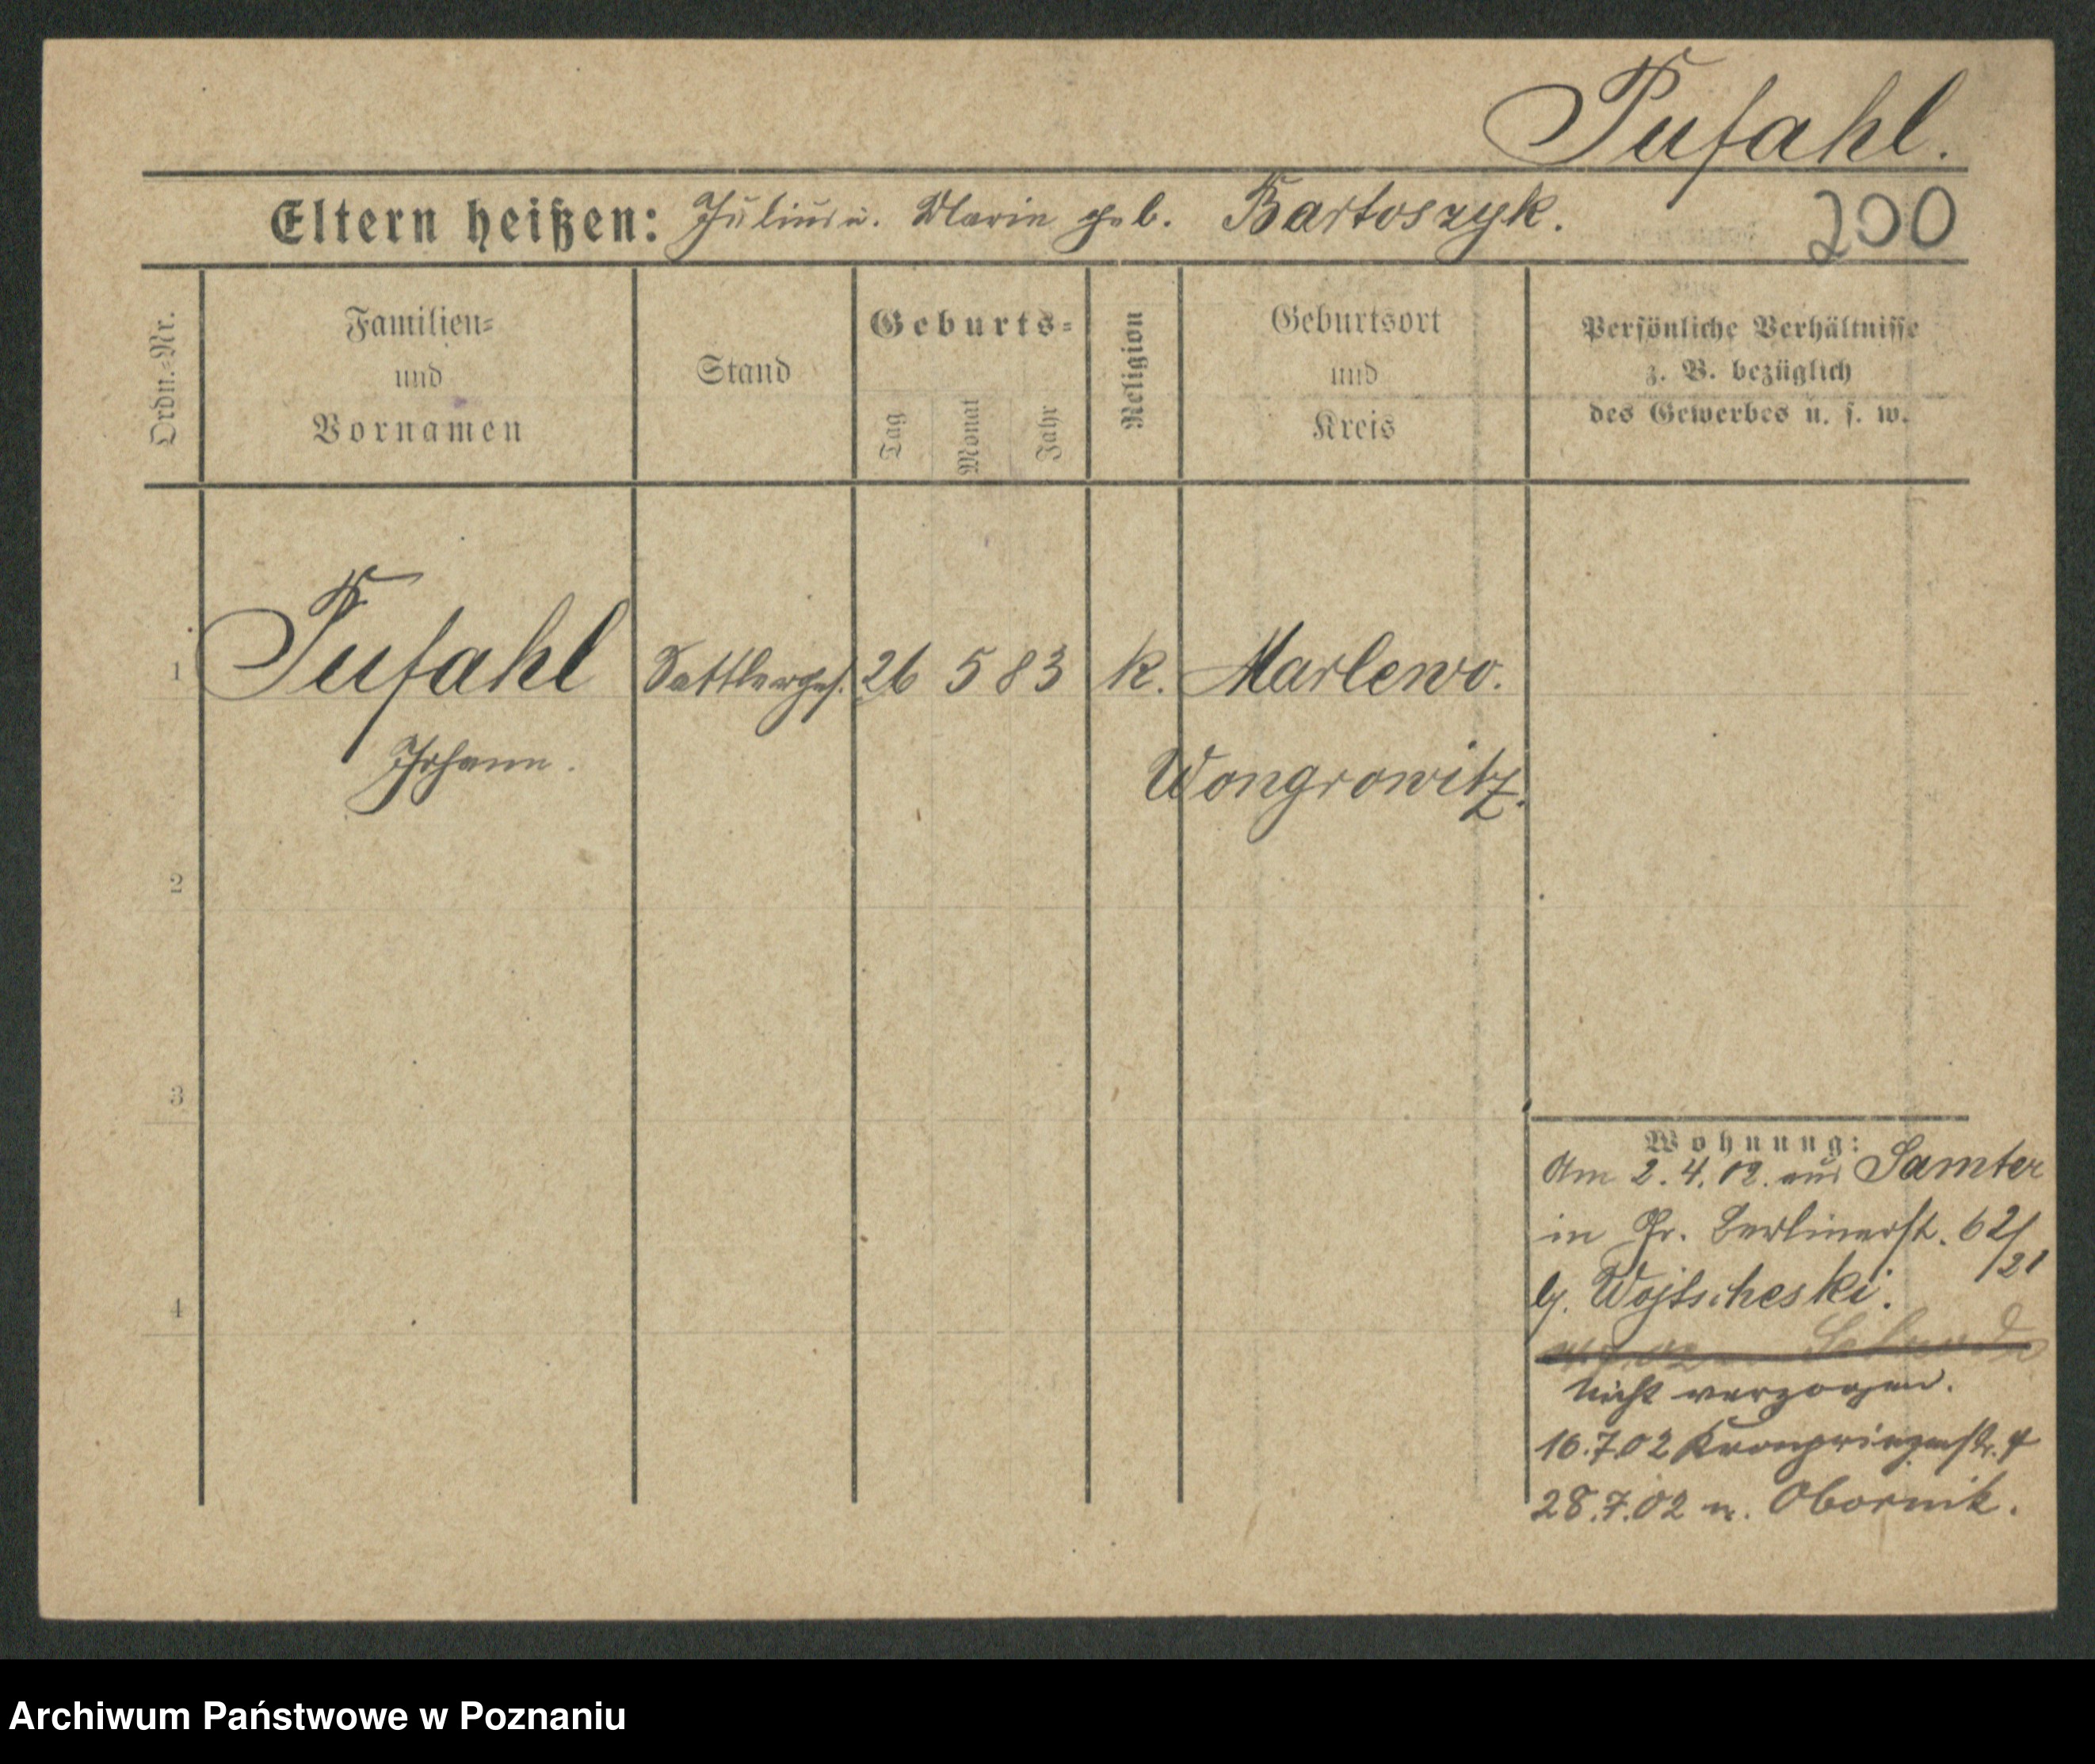 Pufahl.
Eltern heißen: Julius u. Marie geb. Bartoszyk.
200
Ordn.-Nr.
Familien-
und
Vornamen
Stand
Geburts-
Tag
Monat
Jahr
Religion
Geburtsort
und
Kreis
Persönliche Verhältnisse
z. B. bezüglich
des Gewerbes u. s. w.
1 Pufahl Sattlerges. 26 5 83 k. Marlewo.
Johann. Wongrowitz.
2
3
4
Wohnung:
Am 2.4.02. aus Samter
in Gr. Berlinerst. 62/21
b. Wojtscheski.
nicht verzogen.
16.7.02 Kronprinzenstr. 4
28.7.02 n. Obornik.
Archiwum Państwowe w Poznaniu